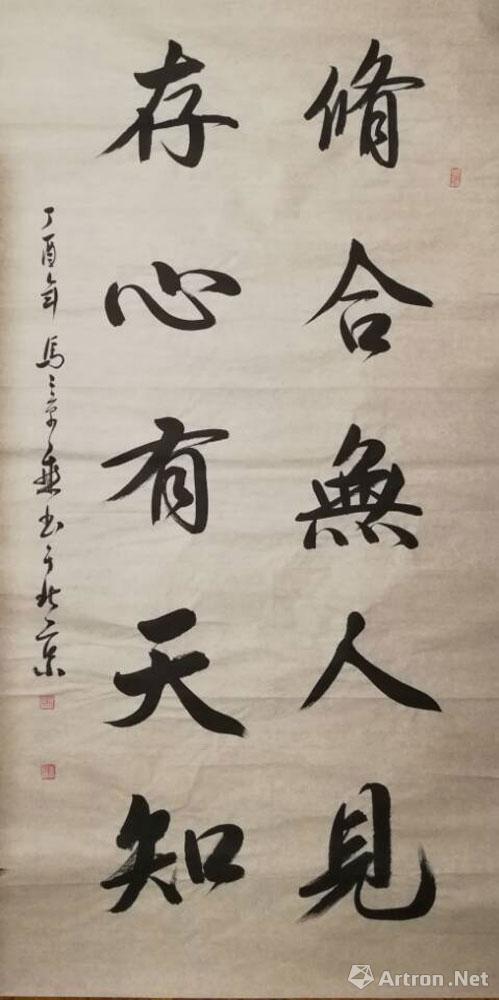 脩合無人見
存心有天知
丁酉年 馬三京 書于北京
Artron.Net